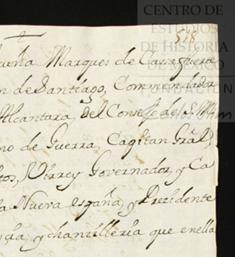 CENTRO DE
ESTUDIOS
DE HISTORIA
DE MÉXICO
518
Marques de
n de Santiago, Commendador
Alcantara, del Consejo de S. M.
no de Guerra, Capitan Grãl.
Virrey Governador, y Ca
la Nueva españa, y Prezidente
ncia, y chancilleria que enella